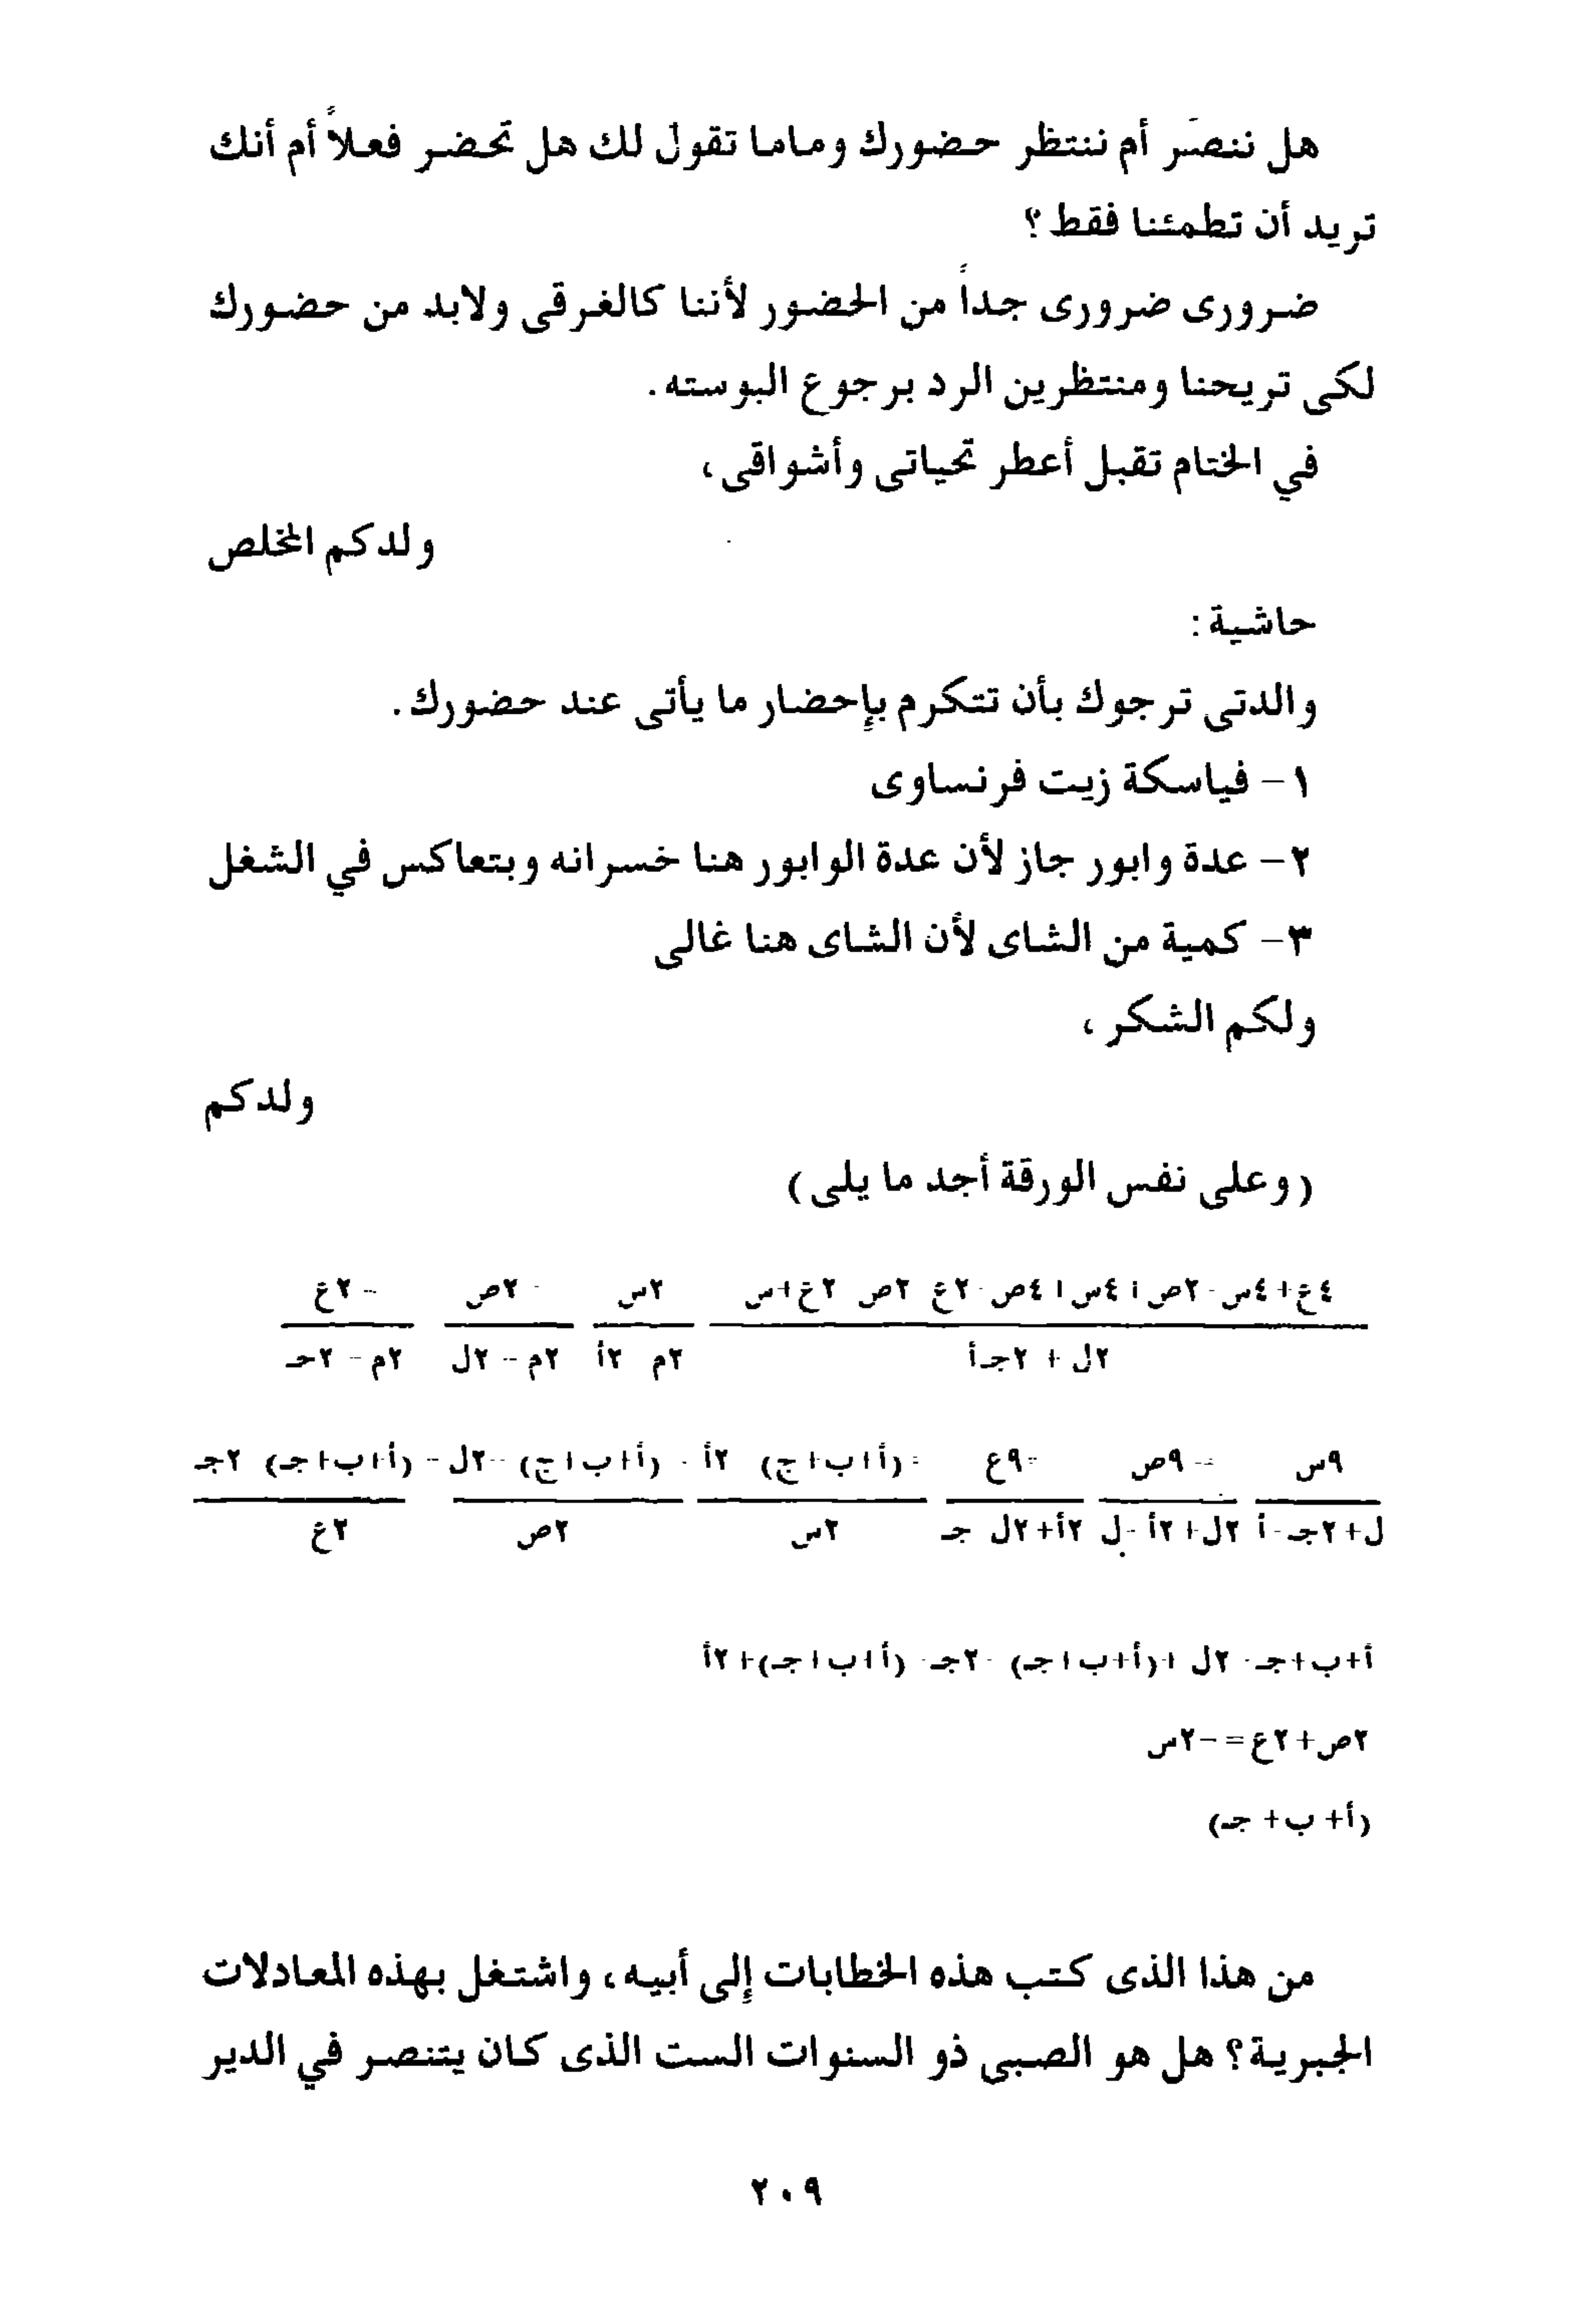 هل ننصّر أم ننتظر حضورك وماما تقول لك هل تحضر فعلاً أم أنك
تريد أن تطمئنا فقط ؟
ضرورى ضرورى جداً من الحضور لأننا كالغرقى ولابد من حضورك
لكى تريحنا ومنتظرين الرد برجوع البوسته .
في الختام تقبل أعطر تحياتى وأشواقى،
ولدكم المخلص
حاشية :
والدتى ترجوك بأن تتكرم بإحضار ما يأتى عند حضورك .
١- فياسكة زيت فرنساوى
٢- عدة وابور جاز لأن عدة الوابور هنا خسرانه وبتعاكس في الشغل
٣- كمية من الشاى لأن الشاى هنا غالى
ولكم الشكر ،
ولدكم
(وعلى نفس الورقة أجد ما يلى)
٤ع+٤س-٢ص+٤س+٤ص-٢ع ٢ص ٢ع+س ٢س -٢ص -٢ع
٢ل + ٢جـ أ ٢م ٢أ ٢م-٢ل ٢م-٢حـ
٩س =-٩ص =٩ع =(أ+ب+ج) ٢أ - (أ+ب+ج)-٢ل-(أ+ب+جـ) ٢جـ
ل+٢جـ-أ ٢ل+٢أ-ل ٢أ+٢ل جـ ٢س ٢ص ٢ع
أ+ب+جـ-٢ل+(أ+ب+جـ)-٢جـ-(أ+ب+جـ)+٢أ
٢ص+٢ع=-٢س
(أ+ب+جـ)
من هذا الذى كتب هذه الخطابات إلى أبيه، واشتغل بهذه المعادلات
الجبرية؟ هل هو الصبى ذو السنوات الست الذى كان يتنصر في الدير
٢٠٩